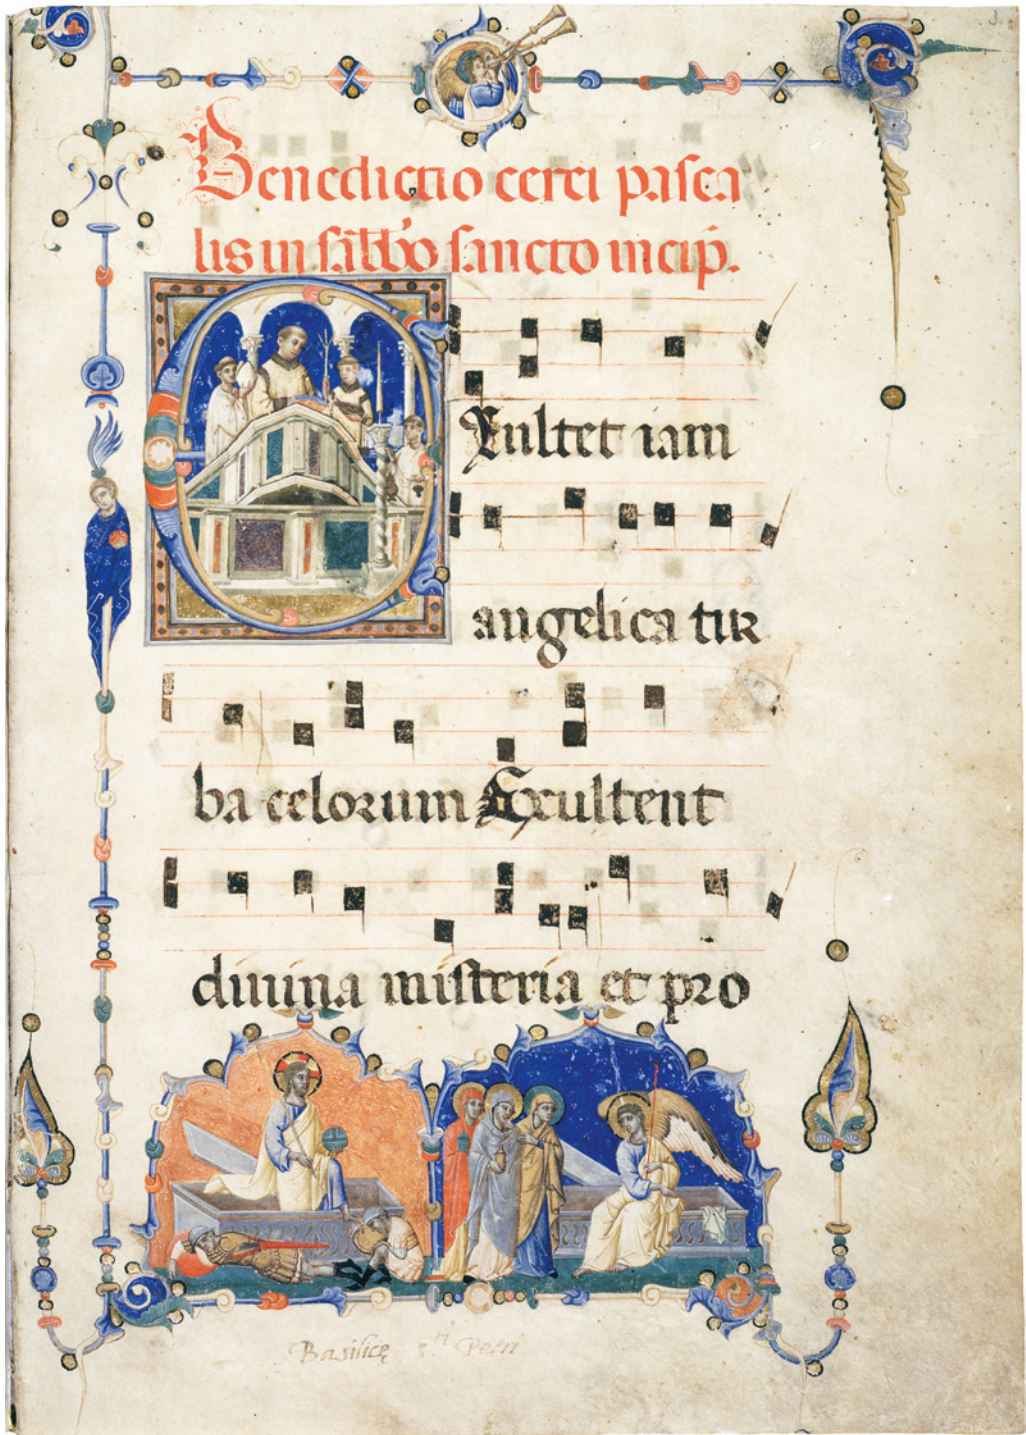 3
Benedictio cerei pasca
lis in sab̄bo sancto incip̄.
Exultet iam
angelica tur
ba celorum Exultent
diuina misteria et pro
Basilicę sti Petri